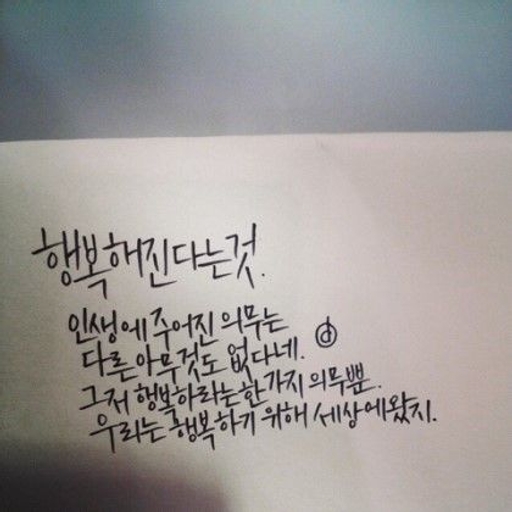 행복해진다는것.
인생에 주어진 의무는
다른 아무것도 없다네.
그저 행복하라는 한가지 의무뿐.
우리는 행복하기 위해 세상에 왔지.